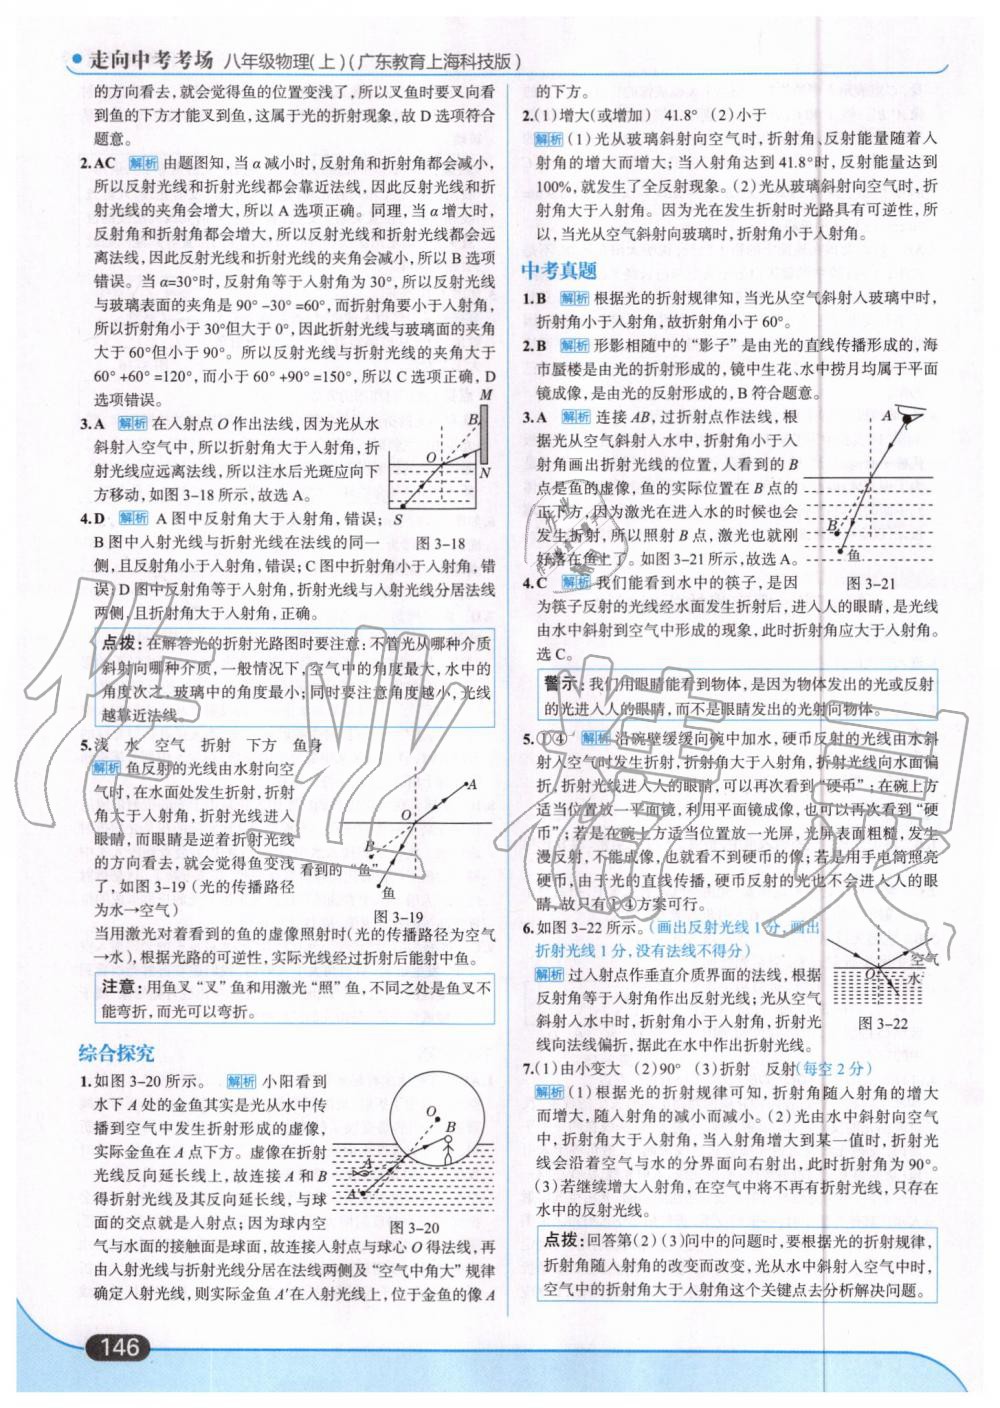 走向中考考场 八年级物理(上)(广东教育上海科技版)
的方向看去,就会觉得鱼的位置变浅了,所以叉鱼时要叉向看
到鱼的下方才能叉到鱼,这属于光的折射现象,故 D 选项符合
题意。
2.AC 解析 由题图知,当 α 减小时,反射角和折射角都会减小,
所以反射光线和折射光线都会靠近法线,因此反射光线和折
射光线的夹角会增大,所以 A 选项正确。同理,当 α 增大时,
反射角和折射角都会增大,所以反射光线和折射光线都会远
离法线,因此反射光线和折射光线的夹角会减小,所以 B 选项
错误。当 α=30°时,反射角等于入射角为 30°,所以反射光线
与玻璃表面的夹角是 90°-30°=60°,而折射角要小于入射角,
所以折射角小于 30°但大于 0°,因此折射光线与玻璃面的夹角
大于 60°但小于 90°。所以反射光线与折射光线的夹角大于
60°+60°=120°,而小于 60°+90°=150°,所以 C 选项正确,D
选项错误。
3.A 解析 在入射点 O 作出法线,因为光从水
斜射入空气中,所以折射角大于入射角,折
射光线应远离法线,所以注水后光斑应向下
方移动,如图 3-18 所示,故选 A。
M
B
O
N
S
图 3-18
4.D 解析 A 图中反射角大于入射角,错误;
B 图中入射光线与折射光线在法线的同一
侧,且反射角小于入射角,错误;C 图中折射角小于入射角,错
误;D 图中反射角等于入射角,折射光线与入射光线分居法线
两侧,且折射角大于入射角,正确。
点拨:在解答光的折射光路图时要注意:不管光从哪种介质
斜射向哪种介质,一般情况下,空气中的角度最大,水中的
角度次之,玻璃中的角度最小;同时要注意角度越小,光线
越靠近法线。
5.浅 水 空气 折射 下方 鱼身
解析 鱼反射的光线由水射向空
气时,在水面处发生折射,折射
角大于入射角,折射光线进入
眼睛,而眼睛是逆着折射光线
的方向看去,就会觉得鱼变浅
了,如图 3-19(光的传播路径
为水→空气)
A
O
B
看到的“鱼”
鱼
图 3-19
当用激光对着看到的鱼的虚像照射时(光的传播路径为空气
→水),根据光路的可逆性,实际光线经过折射后能射中鱼。
注意:用鱼叉“叉”鱼和用激光“照”鱼,不同之处是鱼叉不
能弯折,而光可以弯折。
综合探究
1.如图 3-20 所示。 解析 小阳看到
水下 A 处的金鱼其实是光从水中传
播到空气中发生折射形成的虚像,
实际金鱼在 A 点下方。虚像在折射
光线反向延长线上,故连接 A 和 B
得折射光线及其反向延长线,与球
面的交点就是入射点;因为球内空
O
B
A
A′
图 3-20
气与水面的接触面是球面,故连接入射点与球心 O 得法线,再
由入射光线与折射光线分居在法线两侧及“空气中角大”规律
确定入射光线,则实际金鱼 A′在入射光线上,位于金鱼的像 A
的下方。
2.(1)增大(或增加) 41.8° (2)小于
解析 (1)光从玻璃斜射向空气时,折射角、反射能量随着入
射角的增大而增大;当入射角达到 41.8°时,反射能量达到
100%,就发生了全反射现象。(2)光从玻璃斜射向空气时,折
射角大于入射角。因为光在发生折射时光路具有可逆性,所
以,当光从空气斜射向玻璃时,折射角小于入射角。
中考真题
1.B 解析 根据光的折射规律知,当光从空气斜射入玻璃中时,
折射角小于入射角,故折射角小于 60°。
2.B 解析 形影相随中的“影子”是由光的直线传播形成的,海
市蜃楼是由光的折射形成的,镜中生花、水中捞月均属于平面
镜成像,是由光的反射形成的,B 符合题意。
3.A 解析 连接 AB,过折射点作法线,根
据光从空气斜射入水中,折射角小于入
射角画出折射光线的位置,人看到的 B
点是鱼的虚像,鱼的实际位置在 B 点的
正下方,因为激光在进入水的时候也会
发生折射,所以照射 B 点,激光也就刚
好落在鱼上了。如图 3-21 所示,故选 A。
A
B
鱼
图 3-21
4.C 解析 我们能看到水中的筷子,是因
为筷子反射的光线经水面发生折射后,进入人的眼睛,是光线
由水中斜射到空气中形成的现象,此时折射角应大于入射角。
选 C。
警示:我们用眼睛能看到物体,是因为物体发出的光或反射
的光进入人的眼睛,而不是眼睛发出的光射向物体。
5.①④ 解析 沿碗壁缓缓向碗中加水,硬币反射的光线由水斜
射入空气时发生折射,折射角大于入射角,折射光线向水面偏
折,折射光线进入人的眼睛,可以再次看到“硬币”;在碗上方
适当位置放一平面镜,利用平面镜成像,也可以再次看到“硬
币”;若是在碗上方适当位置放一光屏,光屏表面粗糙,发生
漫反射,不能成像,也就看不到硬币的像;若是用手电筒照亮
硬币,由于光的直线传播,硬币反射的光也不会进入人的眼
睛,故只有①④方案可行。
6.如图 3-22 所示。(画出反射光线 1 分,画出
折射光线 1 分,没有法线不得分)
解析 过入射点作垂直介质界面的法线,根据
反射角等于入射角作出反射光线;光从空气
斜射入水中时,折射角小于入射角,折射光
线向法线偏折,据此在水中作出折射光线。
空气
O
水
图 3-22
7.(1)由小变大 (2)90° (3)折射 反射(每空 2 分)
解析 (1)根据光的折射规律可知,折射角随入射角的增大
而增大,随入射角的减小而减小。(2)光由水中斜射向空气
中,折射角大于入射角,当入射角增大到某一值时,折射光
线会沿着空气与水的分界面向右射出,此时折射角为 90°。
(3)若继续增大入射角,在空气中将不再有折射光线,只存在
水中的反射光线。
点拨:回答第(2)(3)问中的问题时,要根据光的折射规律,
折射角随入射角的改变而改变,光从水中斜射入空气中时,
空气中的折射角大于入射角这个关键点去分析解决问题。
146
作业精灵